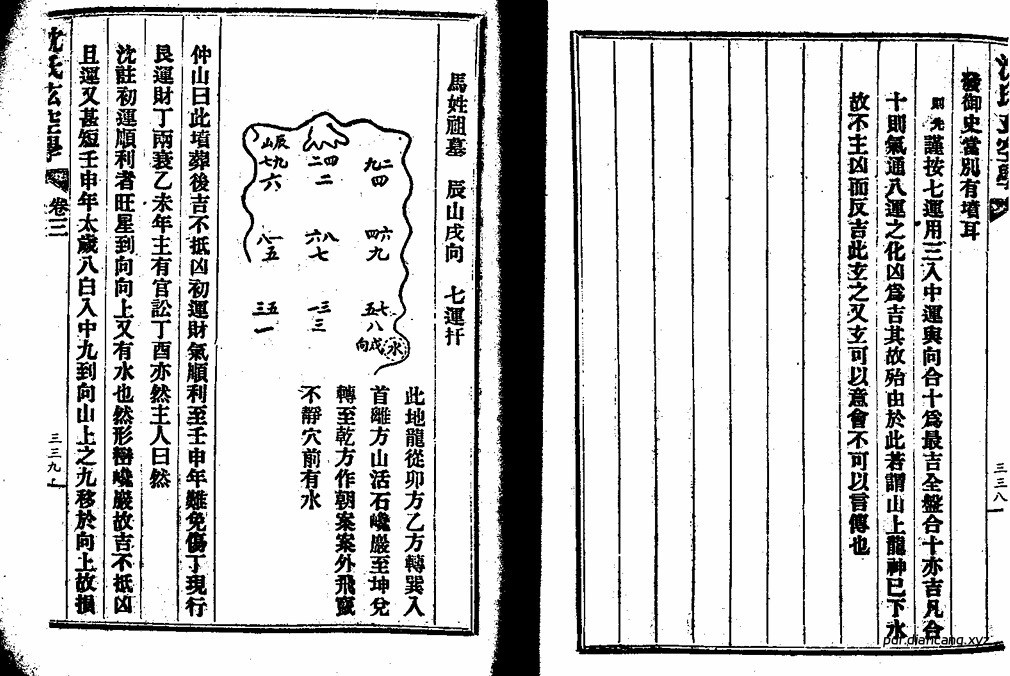 沈氏玄空學
三三八
發御史當別有墳耳
則先謹按七運用三入中運與向合十爲最吉全盤合十亦吉凡合
十則氣通八運之化凶爲吉其故殆由於此若謂山上龍神已下水
故不主凶而反吉此玄之又玄可以意會不可以言傳也
馬姓祖墓 辰山戌向 七運扞
二九 四
六四 九
七五 八
戌向
水
四二 二
八六 七
三一 三
辰山
九七 六
一八 五
五三 一
此地龍從卯方乙方轉巽入
首離方山活石巉巖至坤兌
轉至乾方作朝案案外飛竄
不靜穴前有水
仲山曰此墳葬後吉不抵凶初運財氣順利至壬申年難免傷丁現行
艮運財丁兩衰乙未年主有官訟丁酉亦然主人曰然
沈註初運順利者旺星到向向上又有水也然形巒巉巖故吉不抵凶
且運又甚短壬申年太歲八白入中九到向山上之九移於向上故損
沈氏玄空學
卷三
三三九
pdf.diancang.xyz